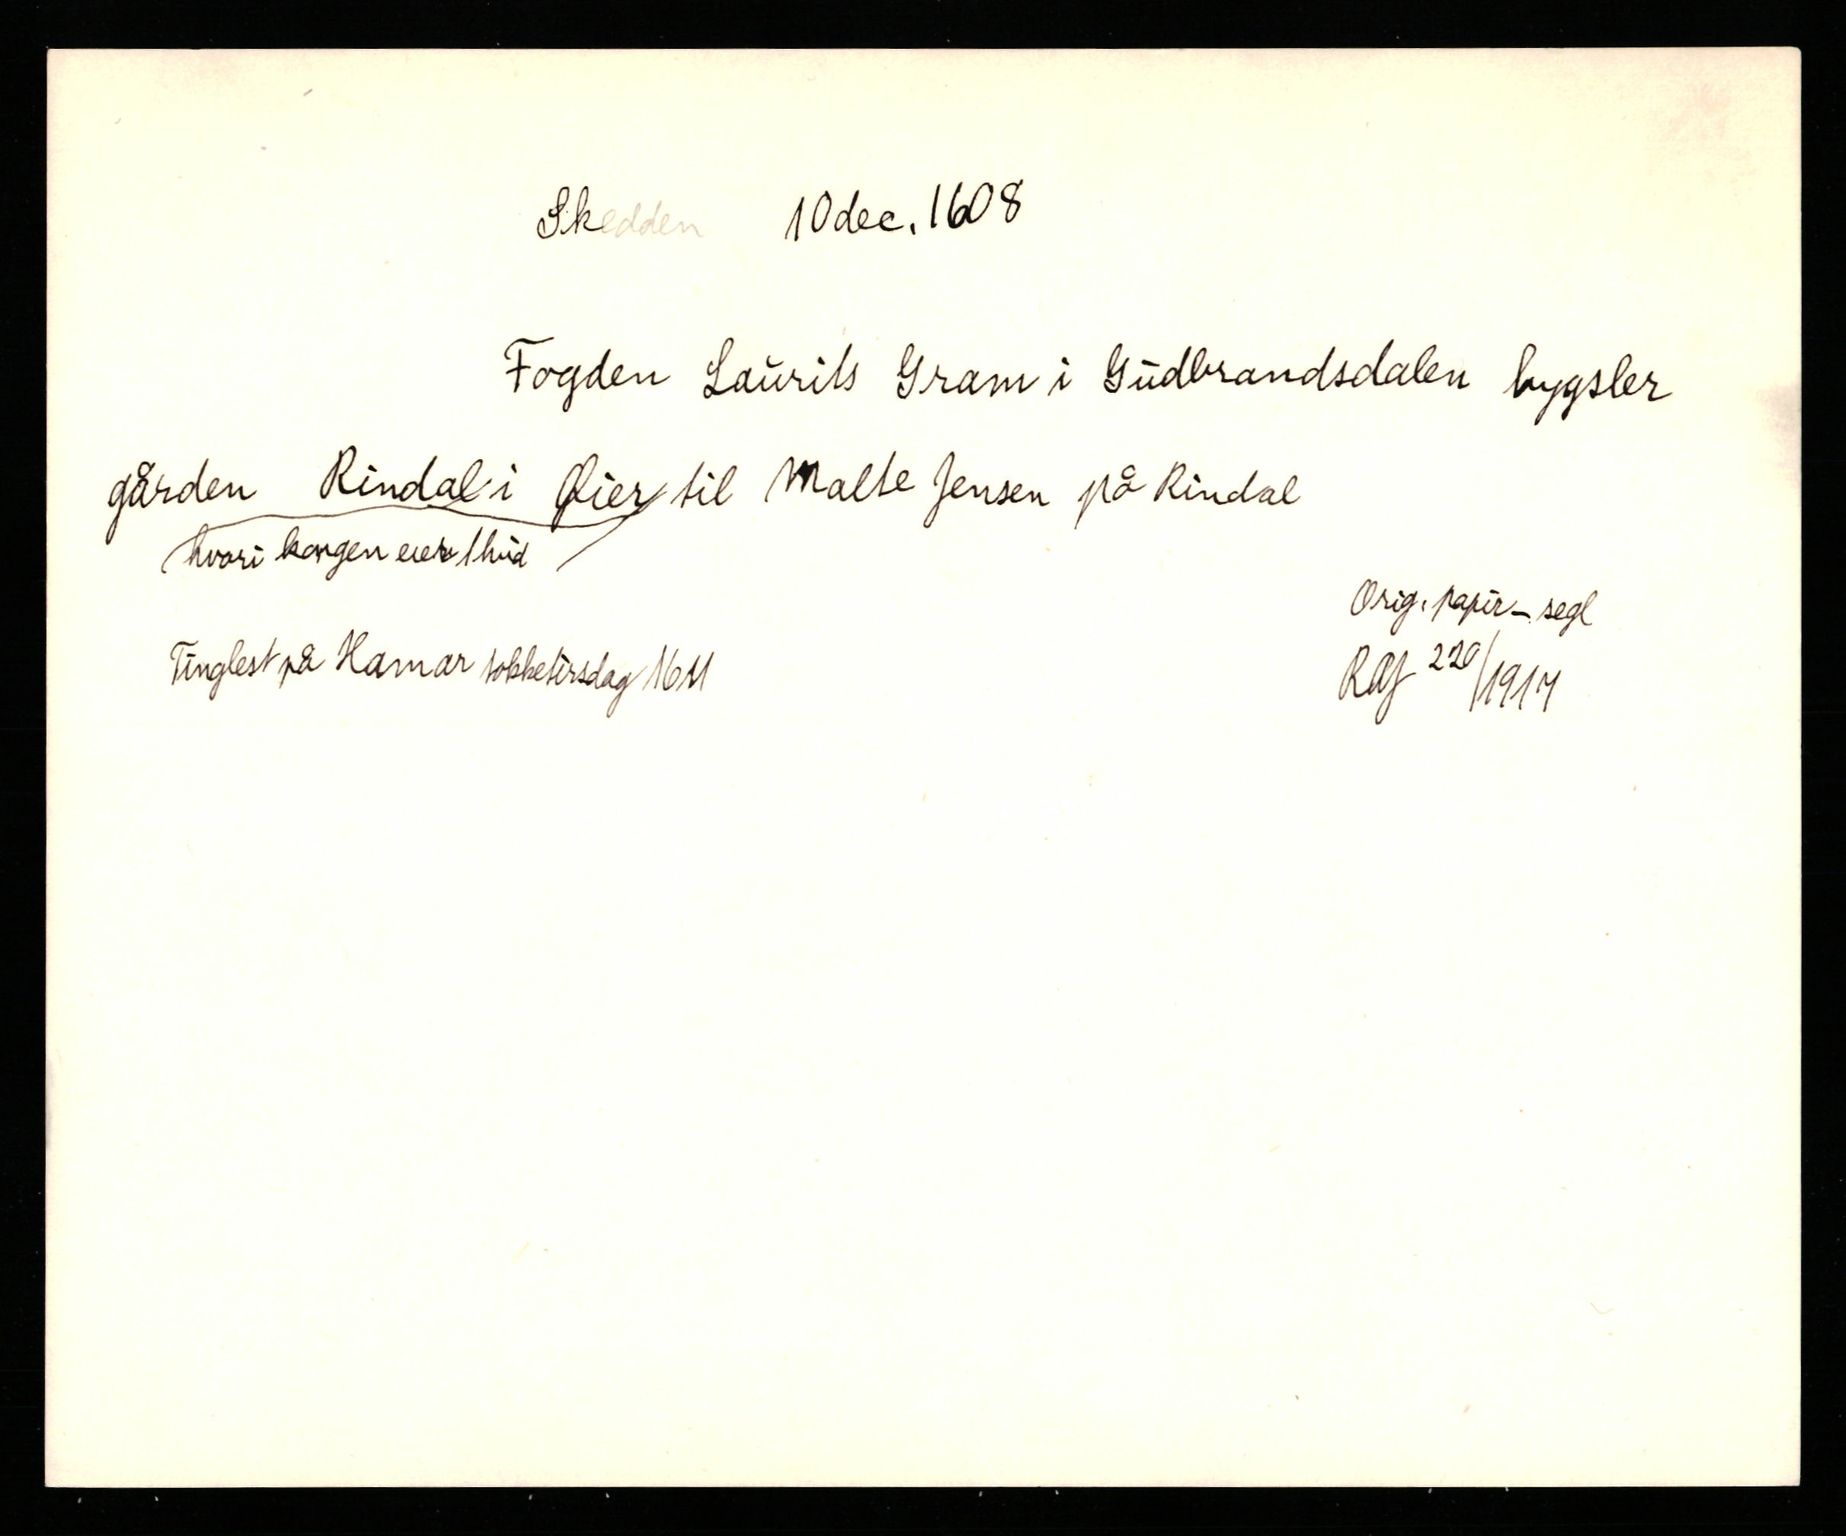 Skedden 10 dec. 1608
Fogden Laurits Gram i Gudbrandsdalen bygsler
gården Rindal i Øier til Malte Jensen på Rindal
hvori kongen eier 1 hud
Tinglest på Hamar sokketirsdag 1611
Orig. papir – segl
RAJ 220/1917